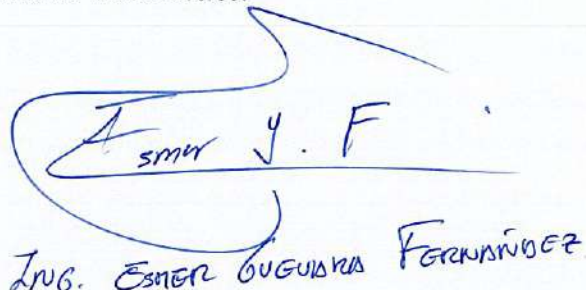 Esmer y. F
ING. ESMER GUEVARA FERNÁNDEZ